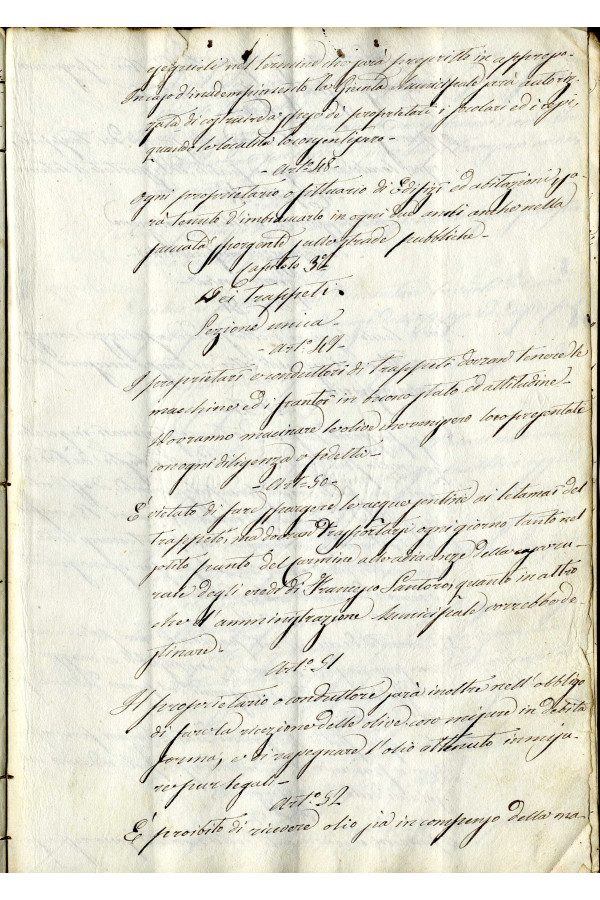 eseguirli nel termine che sarà prescritto in appresso.
In caso d'inadempimento la Giunta Municipale sarà autoriz-
zata di costruire a spese de' proprietari i scolari ed i cessi,
quando le località lo consentissero -
- Art.o 48 -
Ogni proprietario o fittuario di Edifizi ed abitazioni sa-
rà tenuto d'imbiancarlo in ogni due anni anche nella
facciata sporgente sulla strade pubbliche -
Capitolo 3.o
Dei Trappeti.
Sezione unica -
- Art.o 49 -
I proprietari o conduttori di trappeti dovran tenere le
macchine ed i frantoi in buono stato ed attitudine -
Dovranno macinare le olive che venissero loro presentate
con ogni diligenza o fedeltà -
- Art.o 50 -
È vietato di fare spargere le acque putride ai letamai del
Trappeto, ma dovran trasportarsi ogni giorno tanto nel
solito punto del Carmine alle adiacenze della
degli eredi di Francesco Santoro, quanto in altro
che l'amministrazione Municipale vorrebbe de-
stinare.
Art.o 51
Il proprietario o conduttore sarà inoltre nell'obbligo
di fare la ricezione delle olive con misure in debita
forma, e di rassegnare l'olio ottenuto in misu-
re pur legali -
Art.o 52
È proibito di ricevere olio sia in compenso della ma-